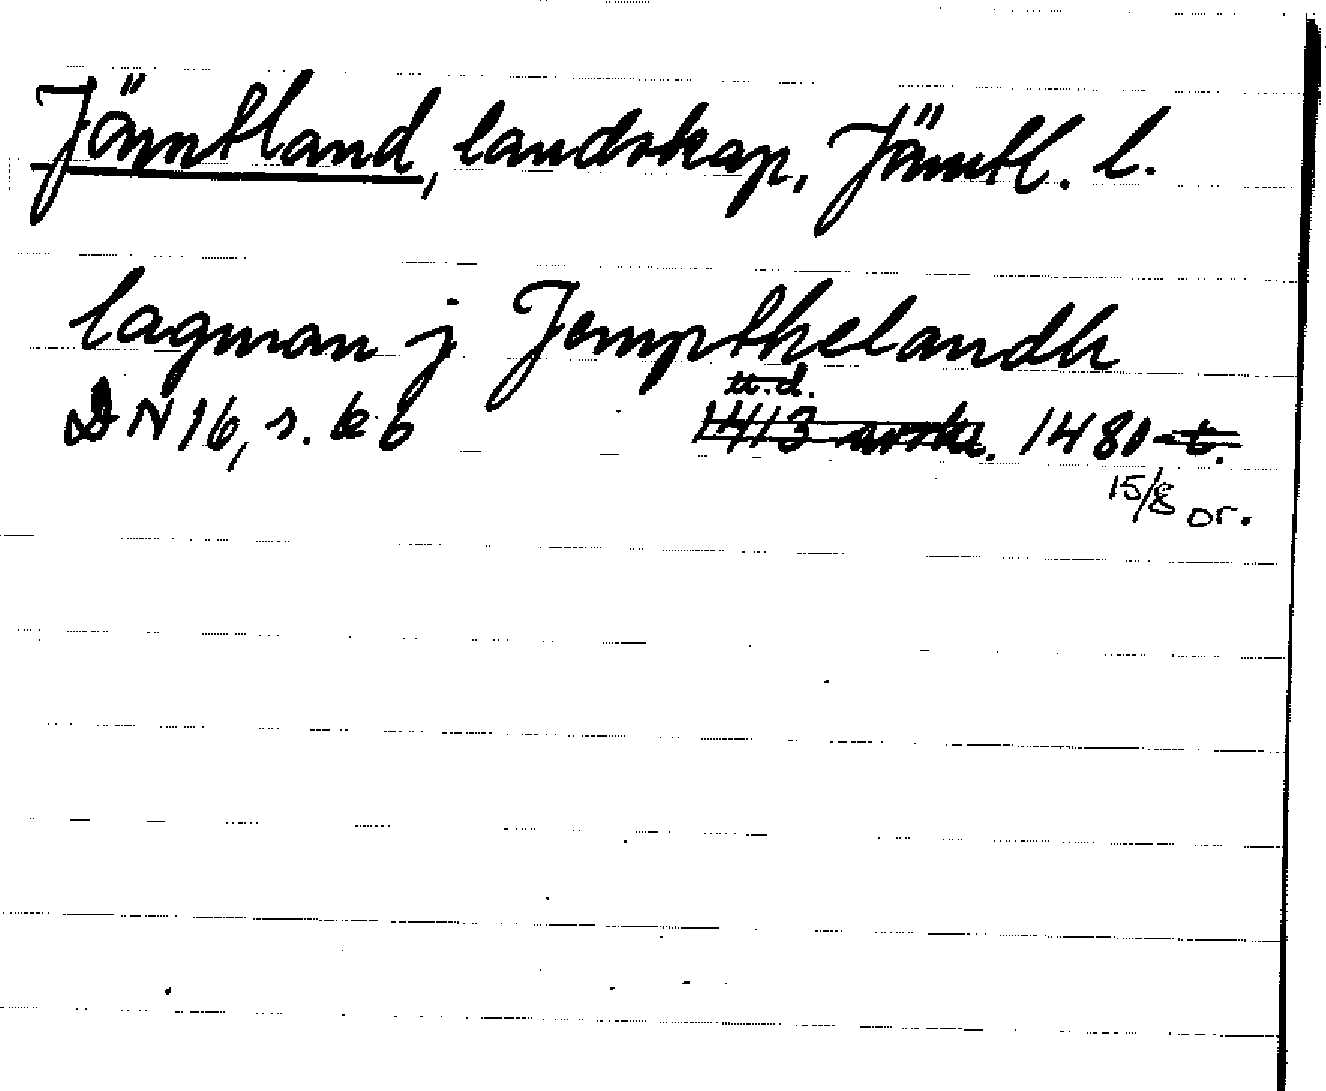 Jämtland, landskap, Jämtl. l.
lagman j Jempthelandh
u.d.
DN 16, s. 1413 avskr. 1480 t.
15/8 or.